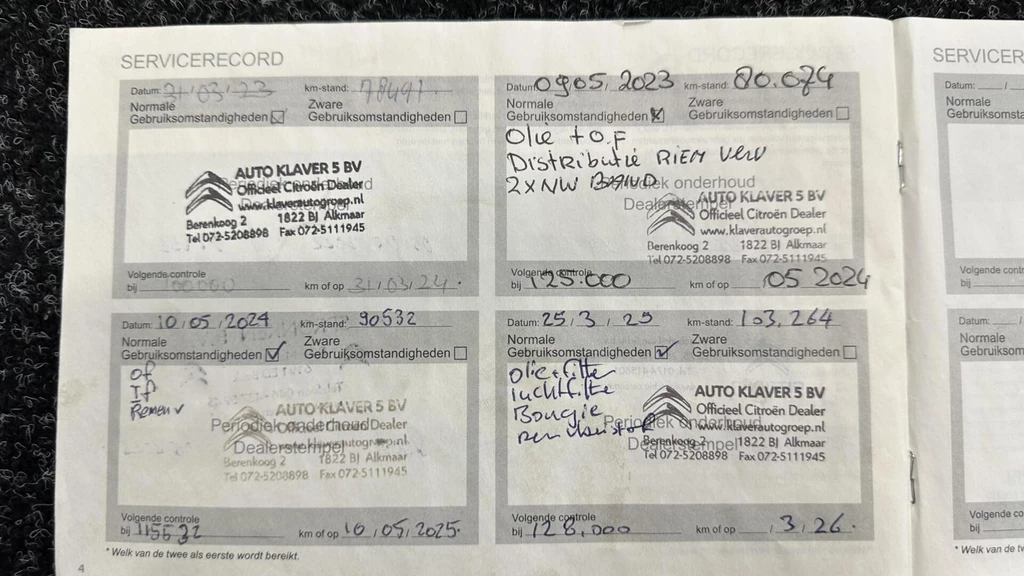 SERVICERECORD
Datum: 31/03/23 km-stand: 78491
Normale Gebruiksomstandigheden ☒ Zware Gebruiksomstandigheden ☐
Periodiek onderhoud
Dealerstempel
AUTO KLAVER 5 BV
Officieel Citroën Dealer
www.klaverautogroep.nl
Berenkoog 2 1822 BJ Alkmaar
Tel 072-5208898 Fax 072-5111945
Volgende controle
bij 100.000 km of op 31/03/24.
Datum: 09/05/2023 km-stand: 80.074
Normale Gebruiksomstandigheden ☒ Zware Gebruiksomstandigheden ☐
Olie + O.F
Distributie RIEM Verv
2x NW BAND
Periodiek onderhoud
Dealerstempel
AUTO KLAVER 5 BV
Officieel Citroën Dealer
www.klaverautogroep.nl
Berenkoog 2 1822 BJ Alkmaar
Tel 072-5208898 Fax 072-5111945
Volgende controle
bij 125.000 km of op /05 2024
Datum: 10/05/2024 km-stand: 90532
Normale Gebruiksomstandigheden ☑ Zware Gebruiksomstandigheden ☐
of
If
Remen v
Periodiek onderhoud
Dealerstempel
AUTO KLAVER 5 BV
Officieel Citroën Dealer
www.klaverautogroep.nl
Berenkoog 2 1822 BJ Alkmaar
Tel 072-5208898 Fax 072-5111945
Volgende controle
bij 115532 km of op 10/05/2025.
Datum: 25/3/25 km-stand: 103.264
Normale Gebruiksomstandigheden ☑ Zware Gebruiksomstandigheden ☐
Olie+filter
luchtfilte
Bougie
Periodiek onderhoud
Dealerstempel
AUTO KLAVER 5 BV
Officieel Citroën Dealer
www.klaverautogroep.nl
Berenkoog 2 1822 BJ Alkmaar
Tel 072-5208898 Fax 072-5111945
Volgende controle
bij 128.000 km of op /3/26.
* Welk van de twee als eerste wordt bereikt.
4
SERVICER
Datum: / /
Normale
Gebruiksomsta
Volgende co
bij
Datum: / /
Normale
Gebruiksom
Volgende co
bij
* Welk van de tw